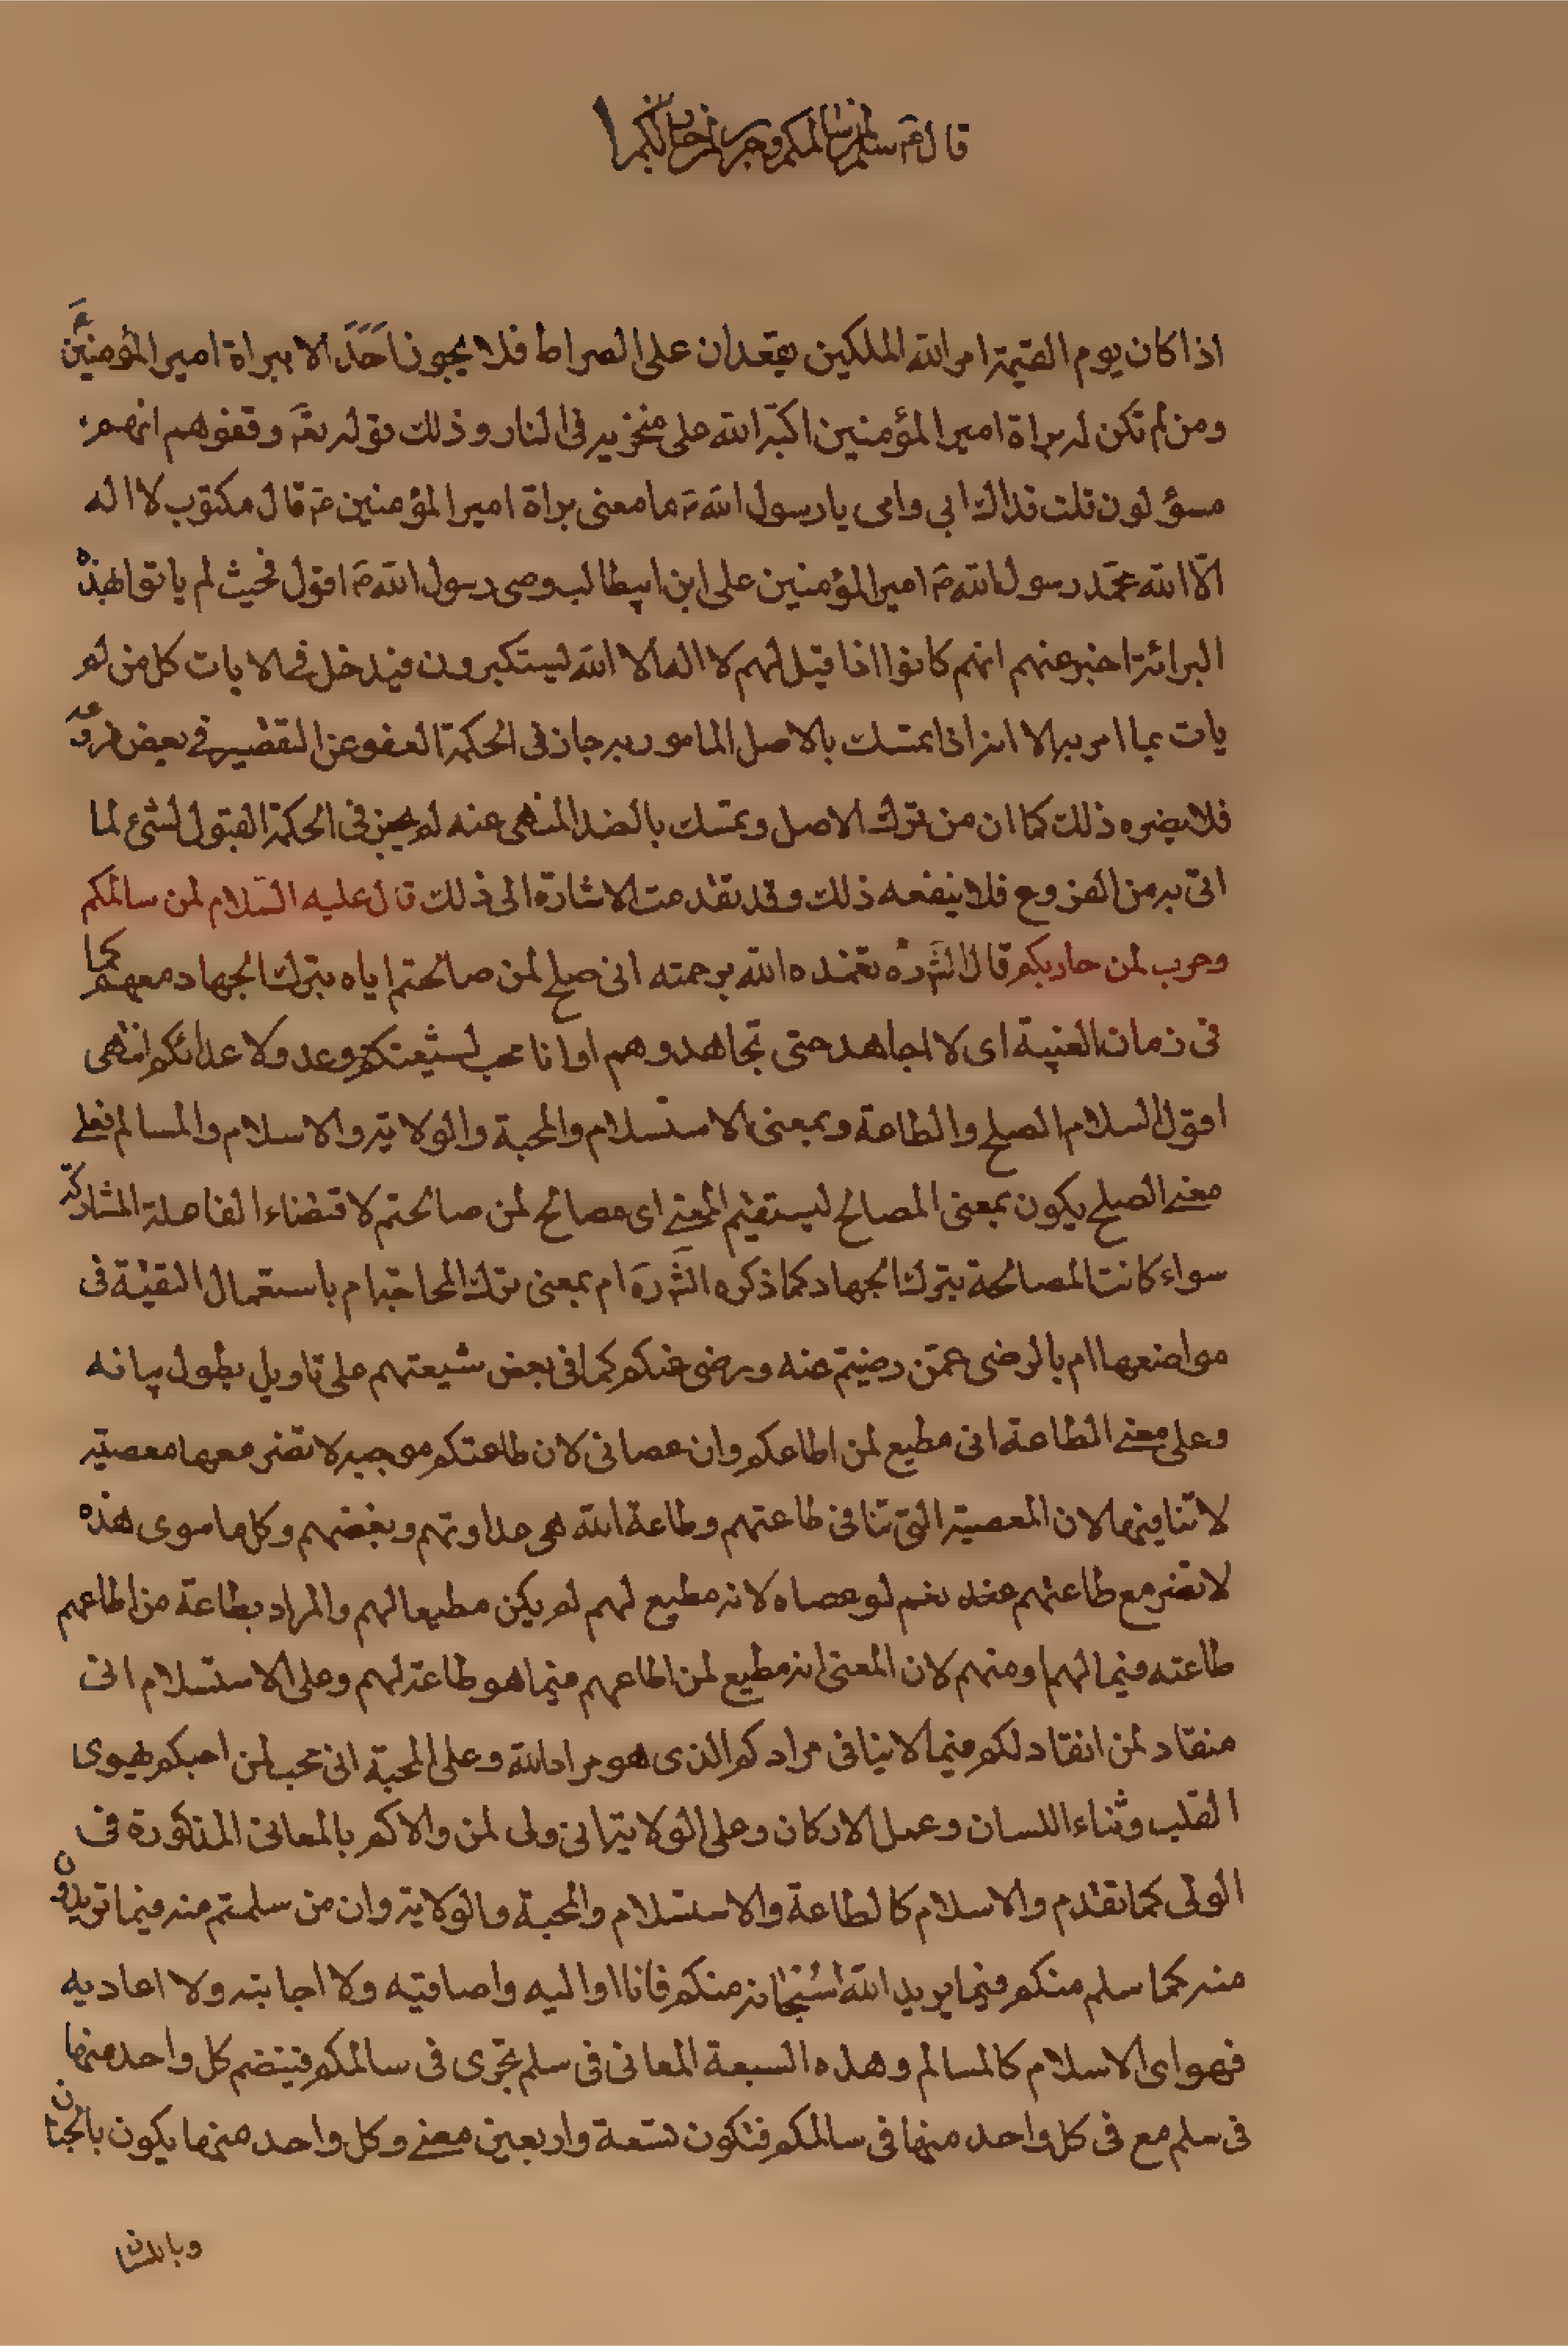 قال ع سلم لمن سالمكم وحرب لمن حاربكم
اذا كان يوم القيمة امر الله الملكين يقعدان على الصراط فلا يجوز احد الا ببراة امير المؤمنين
ومن لم تكن له براة امير المؤمنين اكبه الله على منخريه فى النار وذلك قوله تعم وقفوهم انهم
مسؤلون قلت فداك ابي وامى يا رسول الله ص ما معنى براة امير المؤمنين ع قال مكتوب لا اله
الا الله محمد رسول الله ص امير المؤمنين على ابن ابيطالب وصى رسول الله ص اقول فحيث لم ياتوا بهذه
البرائة اخبر عنهم انهم كانوا اذا قيل لهم لا اله الا الله يستكبرون فيدخل فى الايات كل من لم
يات بما امر به الا انه اذا تمسك بالاصل المامور به جاز فى الحكمة العفو عن التقصير فى بعض فروعه
فلا يضره ذلك كما ان من ترك الاصل وتمسك بالضد المنهى عنه لم يجز فى الحكمة القبول لشئ لما
اتى به من الفروع فلا ينفعه ذلك وقد تقدمت الاشارة الى ذلك قال عليه السلام لمن سالمكم
وحرب لمن حاربكم قال الش ره تغمده الله برحمته انى صلح لمن صالحتم اياه بترك الجهاد معهم كما
فى زمان الغيبة اى لا اجاهد حتى تجاهدوهم او انا محب لشيعتكم وعدو لاعدائكم انتهى
اقول السلام الصلح والطاعة وبمعنى الاستسلام والمحبة والولاية والاسلام والمسالم فعلى
معنى الصلح يكون بمعنى المصالح ليستقيم المعنى اى مصالح لمن صالحتم لاقتضاء الفاصلة المشاركة
سواء كانت المصالحة بترك الجهاد كما ذكره الش ره ام بمعنى ترك المحاجة ام باستعمال التقية فى
مواضعها ام بالرضى عمن رضيتم عنه ورضى عنكم كما فى بعض شيعتهم على تاويل يطول بيانه
وعلى معنى الطاعة انى مطيع لمن اطاعكم وان عصانى لان طاعتكم موجبه لا تضر معها معصية
لا تنافيها لان المعصية التى تنافى طاعتهم وطاعة الله هى عداوتهم وبغضهم وكل ما سوى هذه
لا تضر مع طاعتهم عنده نعم لو عصاه لانه مطيع لهم لم يكن مطيعا لهم والمراد بطاعة من اطاعهم
طاعته فيما لهم او منهم لان المعنى انه مطيع لمن اطاعهم فيما هو طاعة لهم وعلى الاستسلام انى
منقاد لمن انقاد لكم فيما لا ينافى مرادكم الذى هو مراد الله وعلى المحبة انى محب لمن احبكم بهوى
القلب وثناء اللسان وعمل الاركان وعلى الولاية انى ولى لمن والاكم بالمعانى المذكورة فى
الولى كما تقدم والاسلام كالطاعة والاستسلام والمحبة والولاية وان من سلمتم منه فيما تريدون
منه كما سلم منكم فيما يريد الله سبحانه منكم فانا اواليه واصافيه ولا اجانبه ولا اعاديه
فهو اى الاسلام كالمسالم وهذه السبعة المعانى فى سلم تجرى فى سالمكم فينضم كل واحد منها
فى سلم مع فى كل واحد منها فى سالمكم فتكون تسعة واربعين معنى وكل واحد منها يكون بالجنان
وباللسان